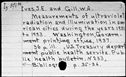 Ives, J.E. and Gill, W.A.
Measurements of ultraviolet
radiation and illumination in
American cities during the years 1931
to 1933. Washington, Government
printing office, 1937.
36 p. ill. (U.S. Treasury depart-
ment, public health service. Pub-
lic health bulletin, #233)
Bibliog.